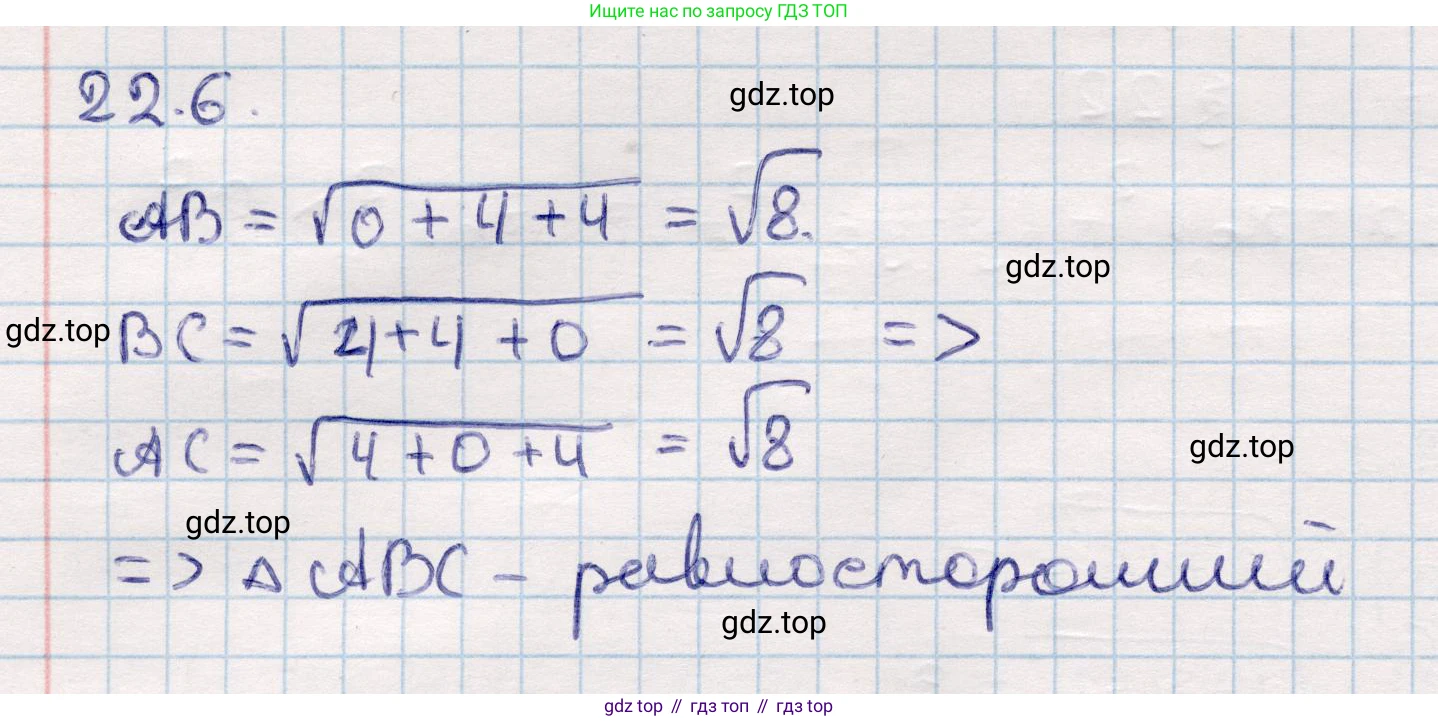 Ищите нас по запросу ГДЗ ТОП
22.6.
gdz.top
AB = √0 + 4 + 4 = √8.
gdz.top
gdz.top BC = √4 + 4 + 0 = √8 =>
AC = √4 + 0 + 4 = √8
gdz.top
gdz.top
=> Δ ABC - равносторонний
gdz.top
gdz top // гдз топ // гдз top